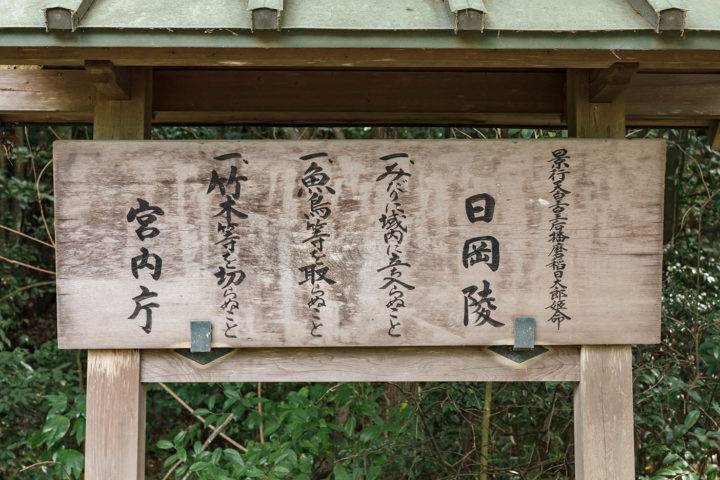 景行天皇皇后播磨稲日太郎姫命
日岡陵
一、みだりに域内に立ち入らぬこと
一、魚鳥等を取らぬこと
一、竹木等を切らぬこと
宮内庁